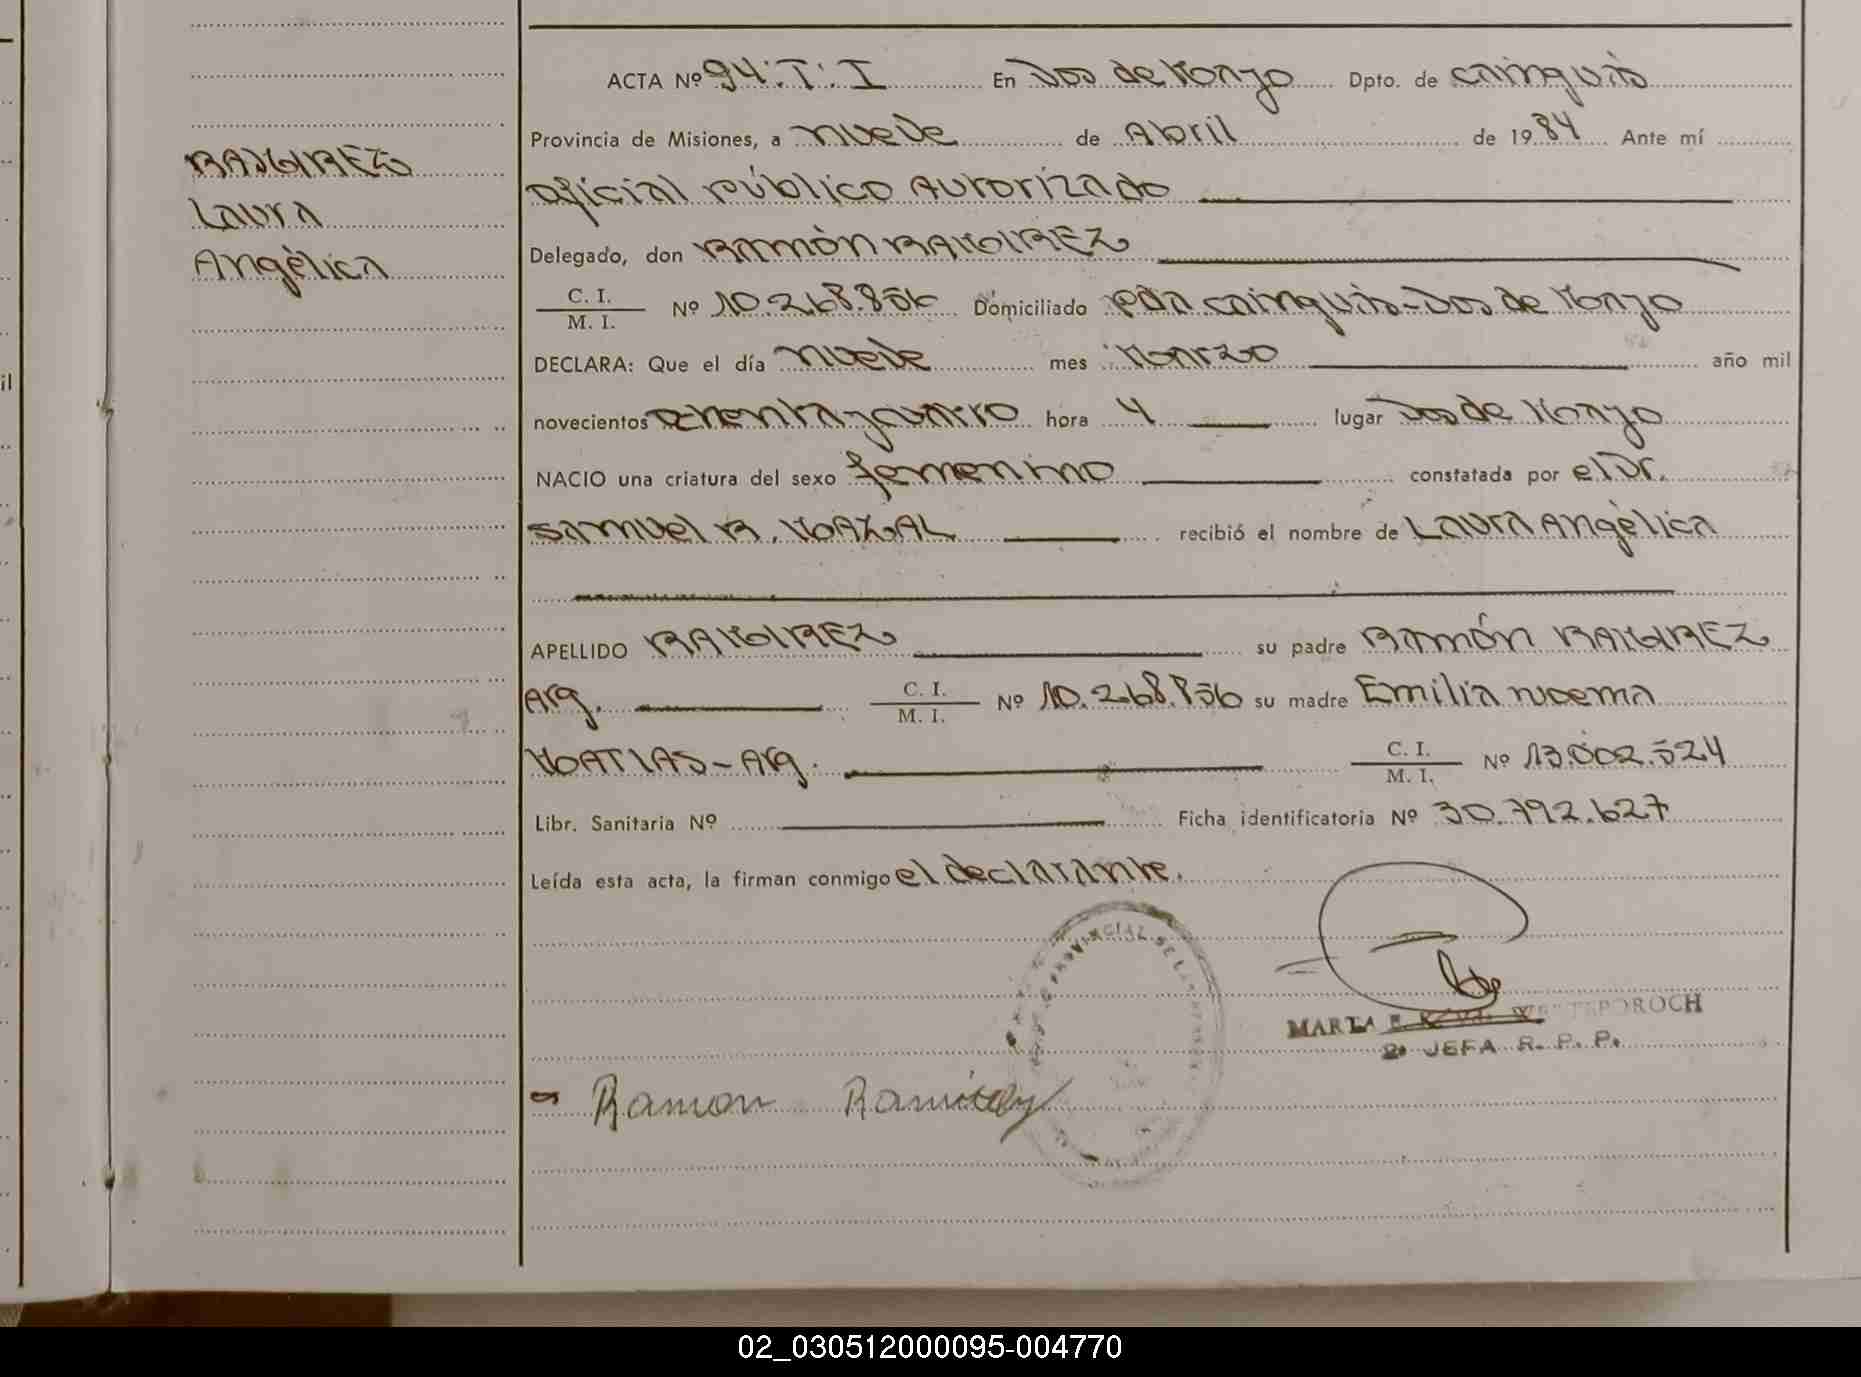 RAMIREZ
Laura
Angélica
ACTA Nº 94.T.I En Dos de Mayo Dpto. de Cainguás
Provincia de Misiones, a nueve de Abril de 1984 Ante mí
Oficial Público Autorizado
Delegado, don Ramón RAMIREZ
C. I. / M. I. Nº 10.268.856 Domiciliado Pdn Cainguás-Dos de Mayo
DECLARA: Que el día nueve mes Marzo año mil
novecientos ochenta y cuatro hora 4 lugar Dos de Mayo
NACIO una criatura del sexo femenino constatada por el Dr.
Samuel R. MAZAL recibió el nombre de Laura Angélica
APELLIDO RAMIREZ su padre Ramón RAMIREZ
Arg. C. I. / M. I. Nº 10.268.856 su madre Emilia Noema
MATIAS-Arg. C. I. / M. I. Nº 13.002.524
Libr. Sanitaria Nº Ficha identificatoria Nº 30.792.627
Leída esta acta, la firman conmigo el declarante.
PROVINCIAL DE LAS
MARTA
2º JEFA R. P. P.
Ramon Ramirez
il
02_030512000095-004770